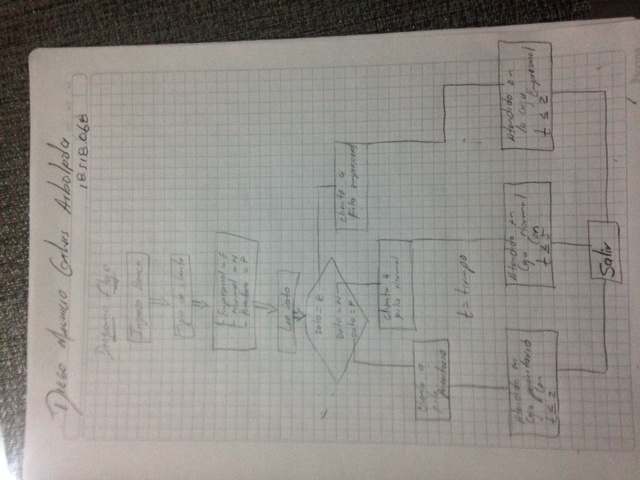 Diego Mauricio Arboleda
18.518.068
Diagrama Flujo
Ingreso Banco
Tipo de cliente
- Empresarial = E
- Normal = N
- = P
Leer Dato
Dato = E
Dato = N
Dato = P
Cliente a
Fila empresarial
Cliente a
fila Normal
Cliente a
fila
t = tiempo
Atendido en
Caja
con
t ≤ 2
Atendido en
Caja Normal
con
t ≤ 5
Atendido en
la caja
Empresarial
t ≤ 2
Salir